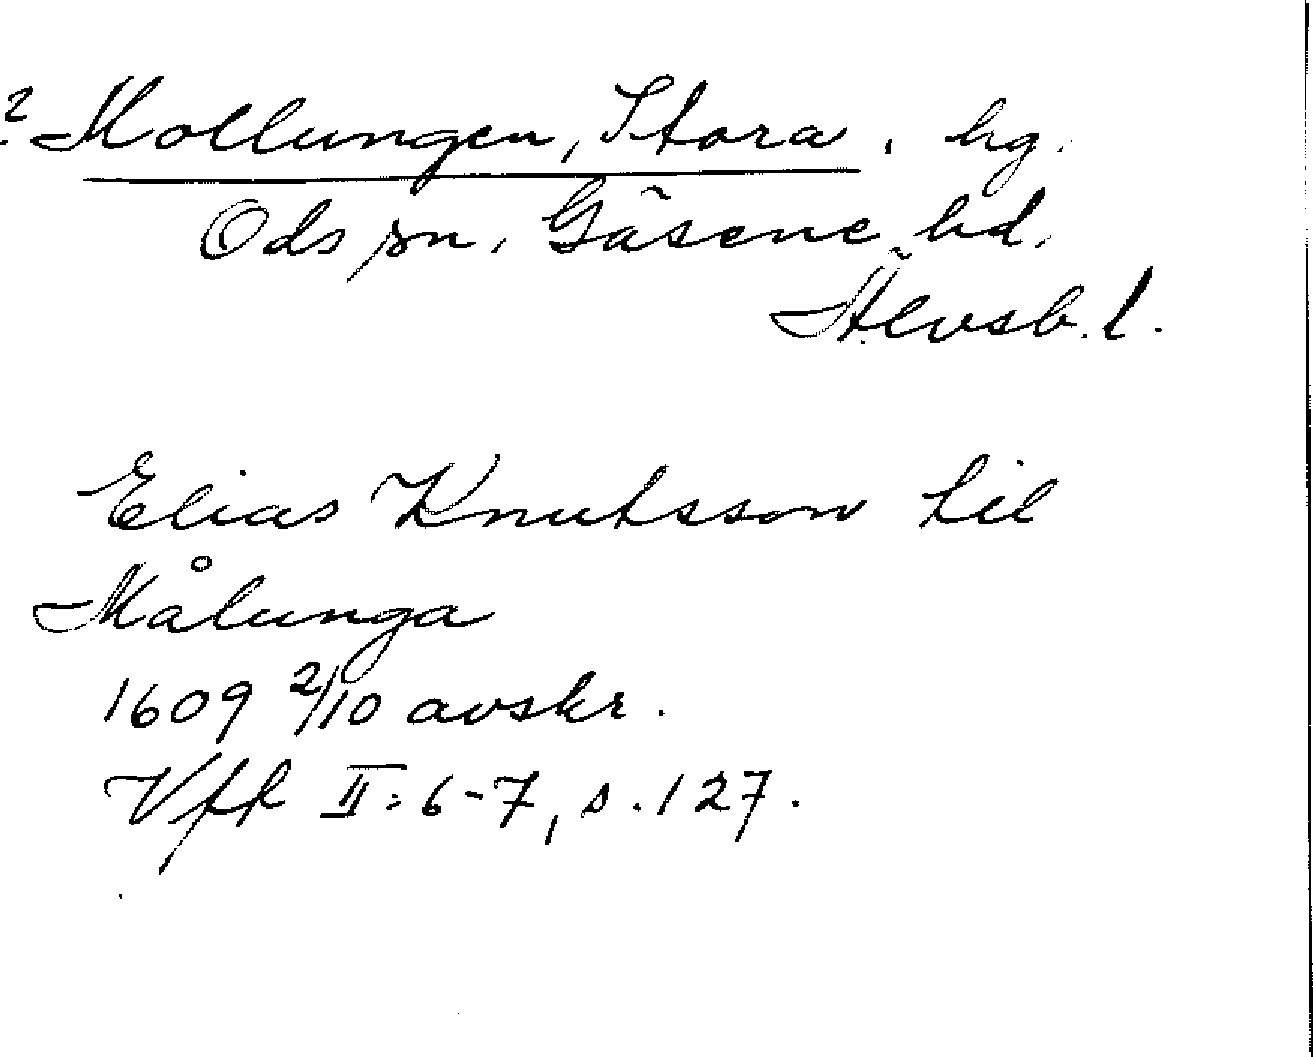 ? Mollungen, Stora. hg.
Ods sn. Gäsene hd.
Älvsb. l.
Elias Knutsson til
Målunga
1609 2/10 avskr.
Vff II: 6-7, s. 127.